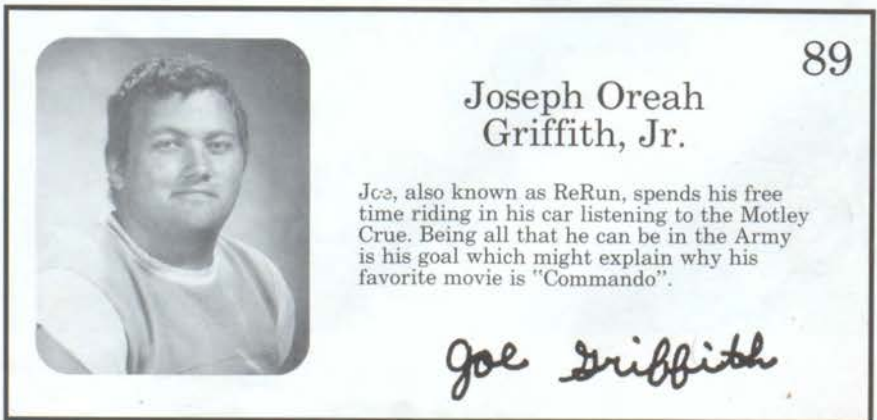 89
Joseph Oreah
Griffith, Jr.
Joe, also known as ReRun, spends his free
time riding in his car listening to the Motley
Crue. Being all that he can be in the Army
is his goal which might explain why his
favorite movie is "Commando".
Joe Griffith